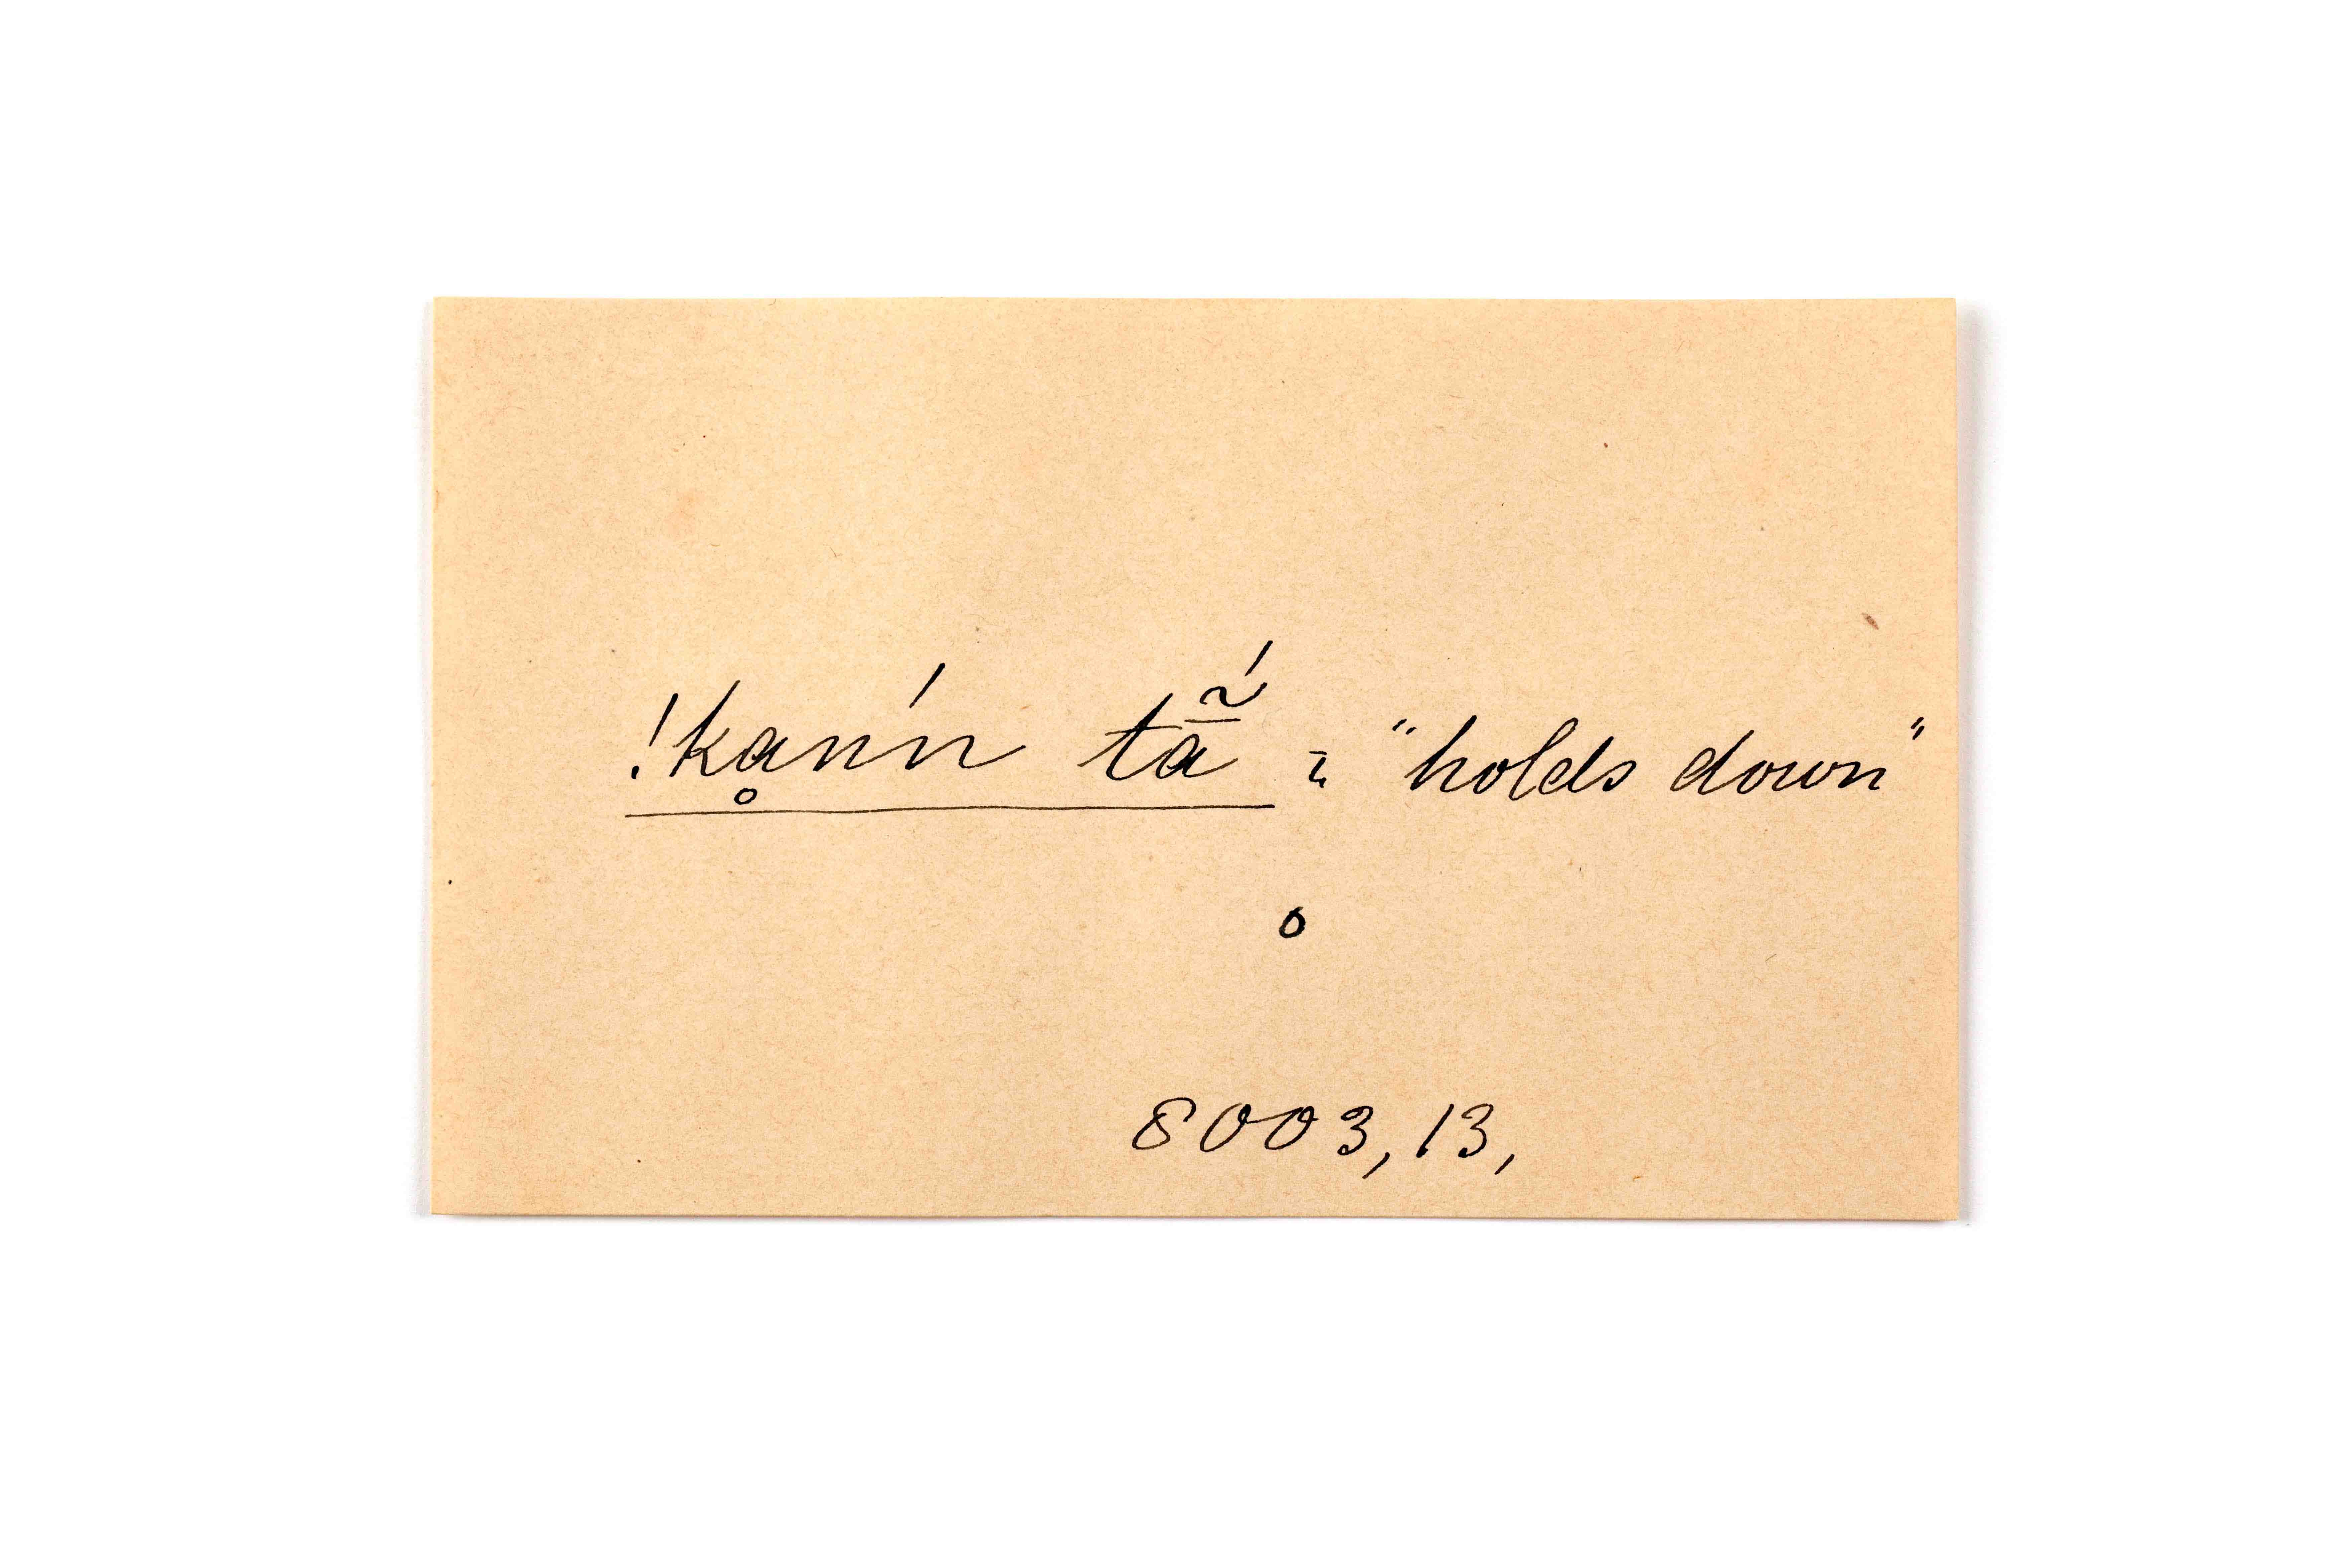 !kḁnńn tā̃́ = "holds down"
o
8003, 13,